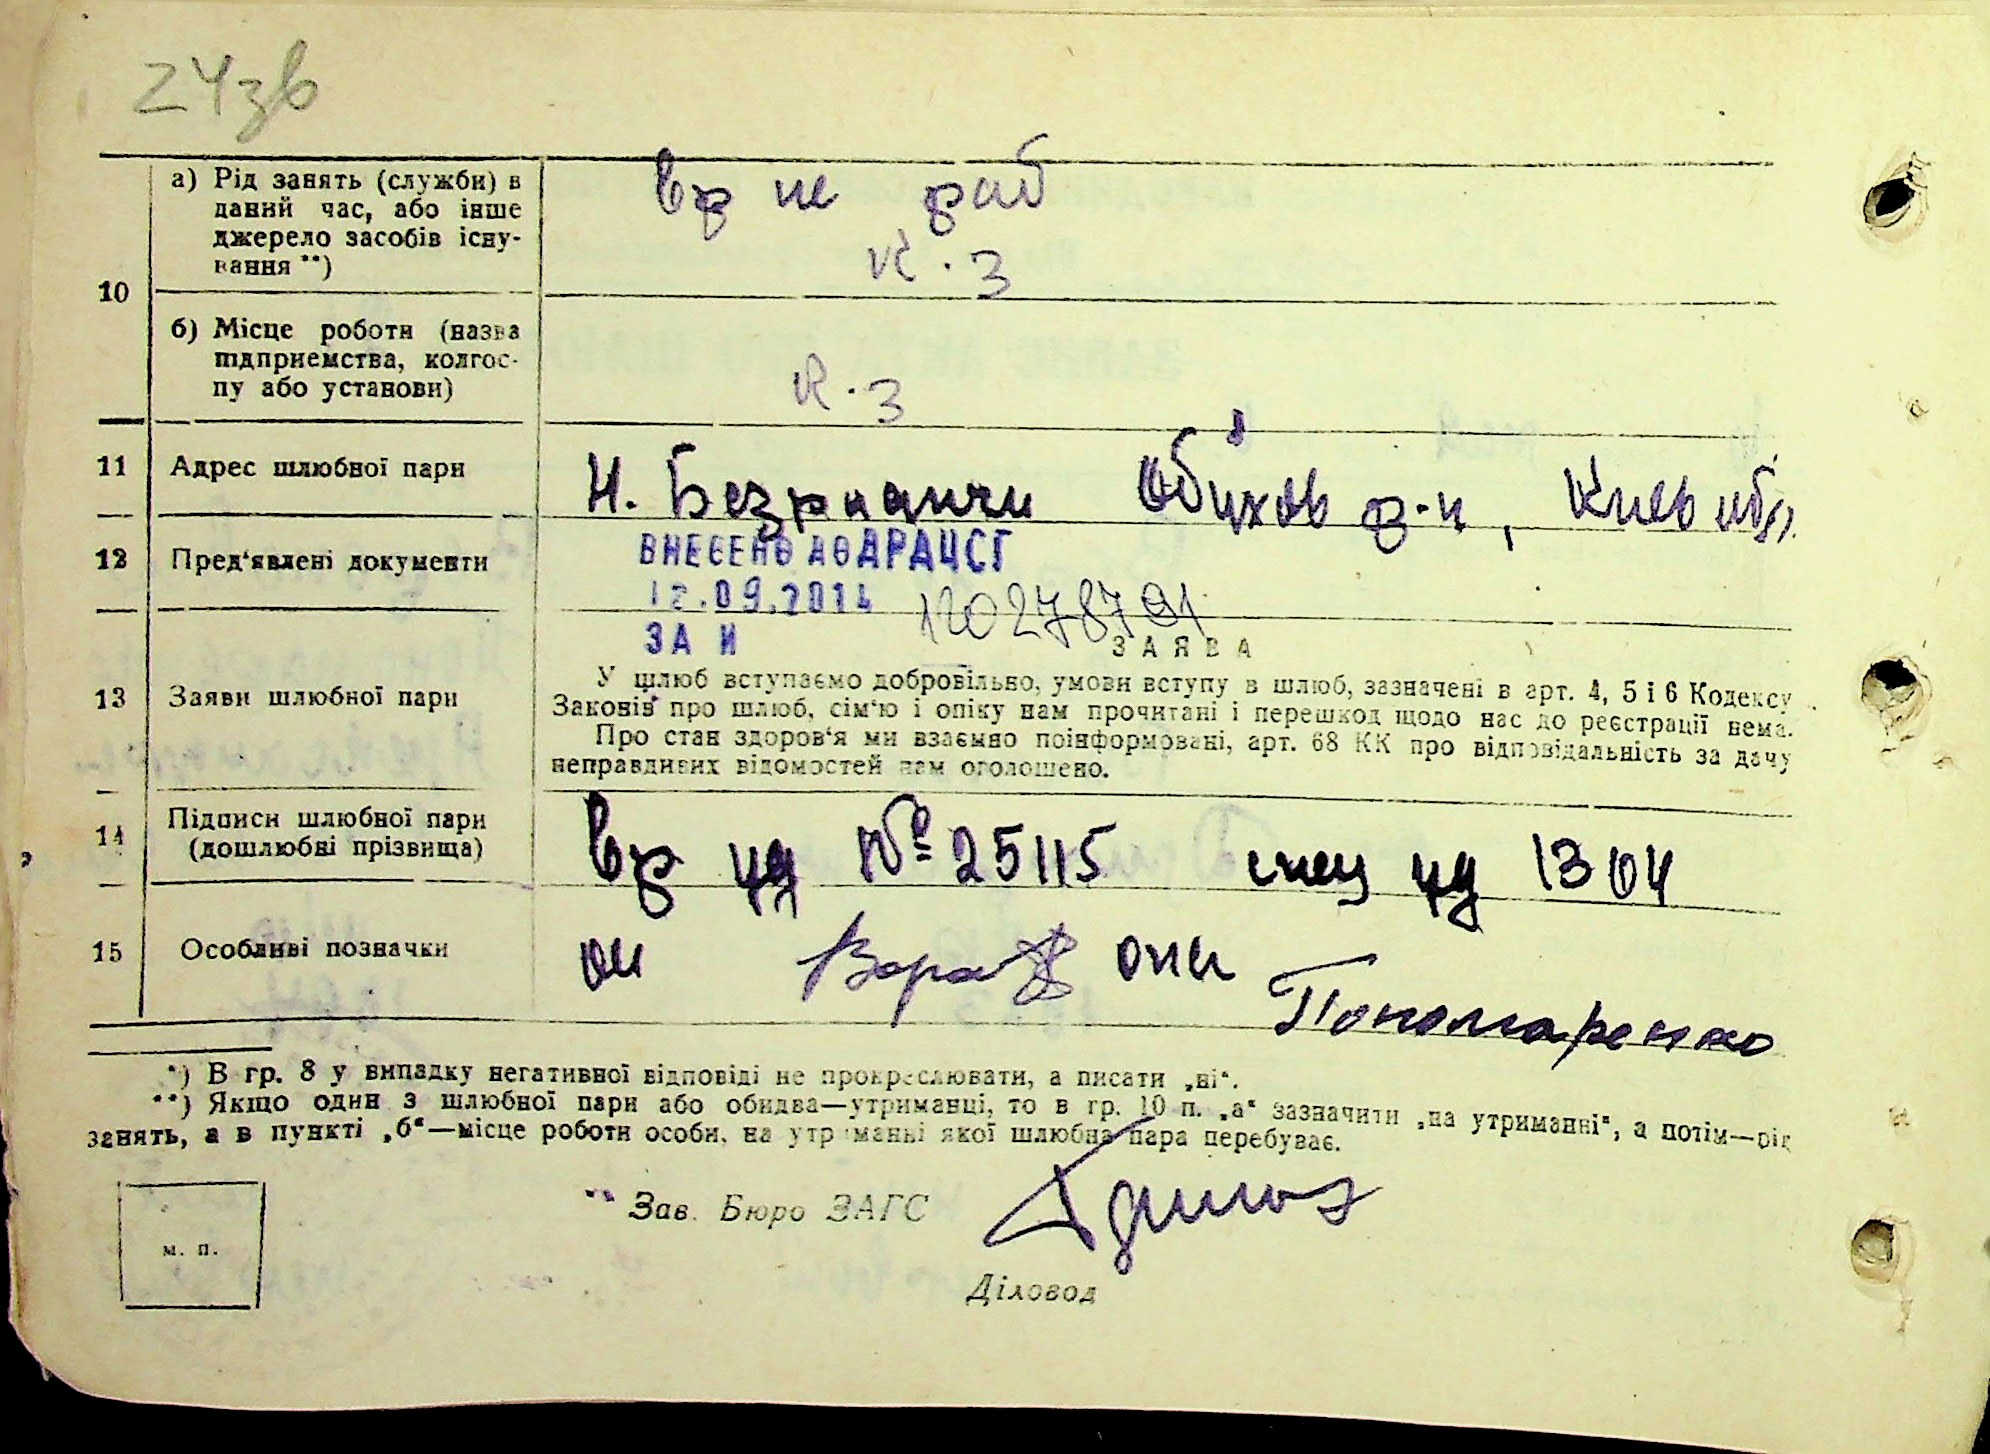 24зв
а) Рід занять (служби) в
даний час, або інше
джерело засобів існу-
вання **)
вр не раб
к. з
10
б) Місце роботи (назва
підприємства, колгос-
пу або установи)
к. з
11 Адрес шлюбної пари Н. Безрадичи Обухов р-н, Киев обл.
12 Пред'явлені документи
ВНЕСЕНО ДО ДРАЦСГ
12.09.2014
ЗА N 120278791
ЗАЯВА
13 Заяви шлюбної пари
У шлюб вступаємо добровільно, умови вступу в шлюб, зазначені в арт. 4, 5 і 6 Кодексу
Законів про шлюб, сім'ю і опіку нам прочитані і перешкод щодо нас до реєстрації нема.
Про стан здоров'я ми взаємно поінформовані, арт. 68 КК про відповідальність за дачу
неправдивих відомостей нам оголошено.
14 Підписи шлюбної пари
(дошлюбні прізвища)
вр уд № 25115 спец уд 1304
15 Особливі позначки
он она Пономаренко
*) В гр. 8 у випадку негативної відповіді не прокреслювати, а писати „ні“.
**) Якщо один з шлюбної пари або обидва—утриманці, то в гр. 10 п. „а“ зазначити „на утриманні“, а потім—рід
занять, а в пункті „б“—місце роботи особи, на утриманні якої шлюбна пара перебуває.
Зав. Бюро ЗАГС
м. п.
Діловод